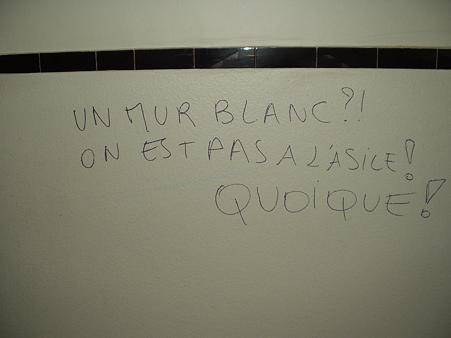 UN MUR BLANC?!
ON EST PAS A L'ASILE!
QUOIQUE!